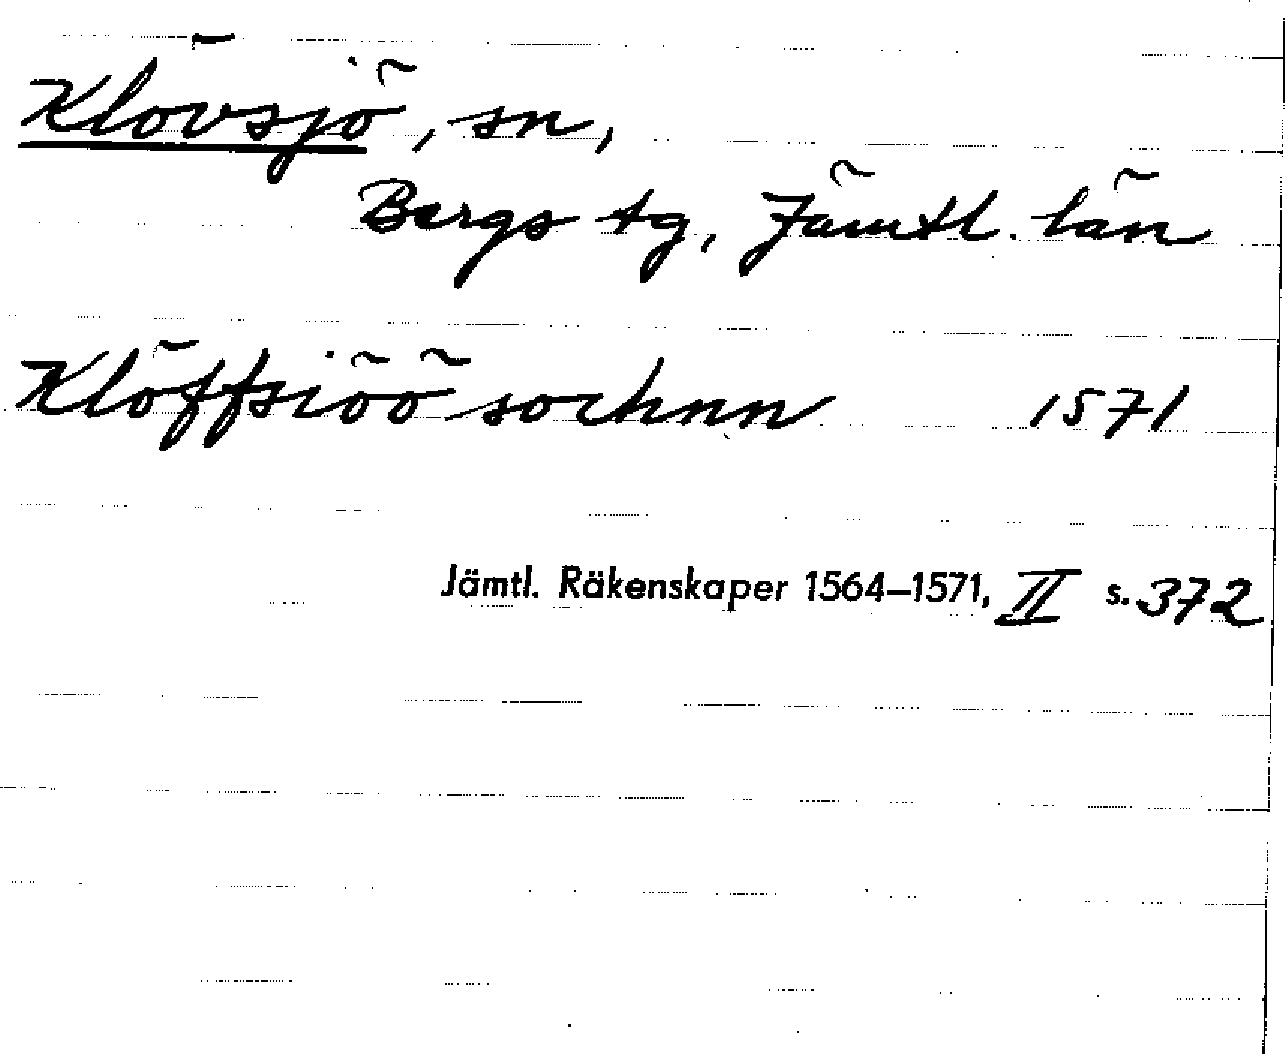 Klövsjö, sn,
Bergs tg, Jämtl. län
Klöffsiöö sochnn 1571
Jämtl. Räkenskaper 1564–1571, II s. 372